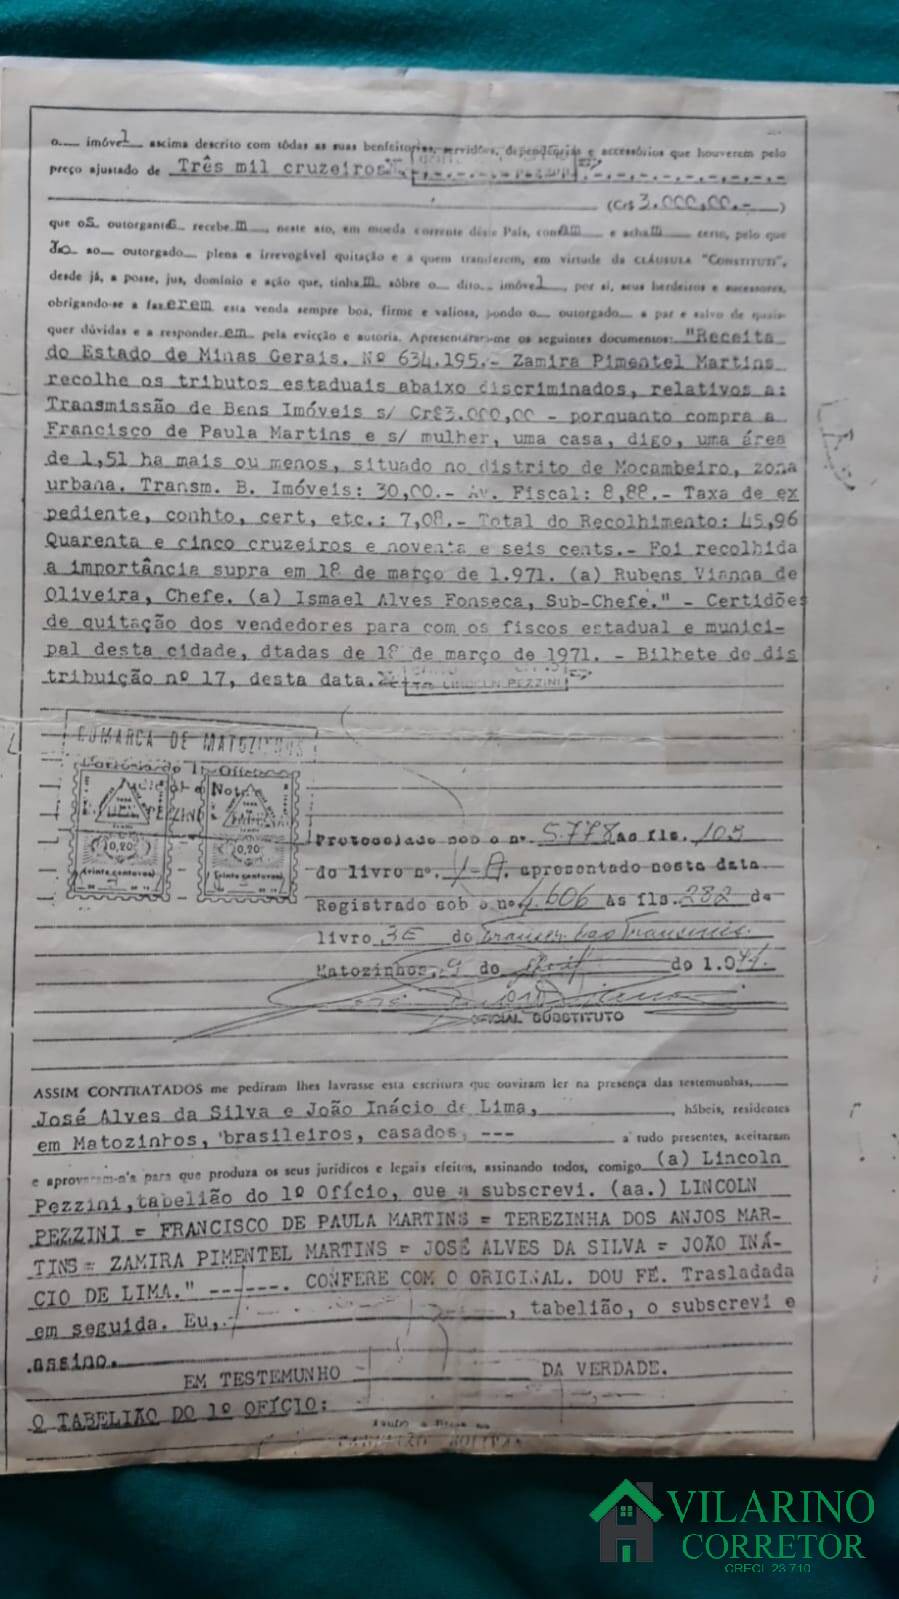 o imóvel ascima descrito com tôdas as suas benfeitorias, servidões, dependências e accessórios que houverem pelo
preço ajustado de Três mil cruzeiros
(Cr$ 3.000,00.-)
que os outorgantes recebem, neste ato, em moeda corrente dêste País, contam e acham certo, pelo que
dão ao outorgado plena e irrevogável quitação e a quem transferem, em virtude da CLÁUSULA "CONSTITUTI",
desde já, a posse, jus, domínio e ação que, tinham sôbre o dito imóvel, por si, seus herdeiros e sucessores,
obrigando-se a fazerem esta venda sempre boa, firme e valiosa, pondo o outorgado a par e salvo de quais-
quer dúvidas e a responderem pela evicção e autoria. Apresentaram-me os seguintes documentos: "Receita
do Estado de Minas Gerais. Nº 634.195.- Zamira Pimentel Martins
recolhe os tributos estaduais abaixo discriminados, relativos a:
Transmissão de Bens Imóveis s/ Cr$3.000,00 - porquanto compra a
Francisco de Paula Martins e s/ mulher, uma casa, digo, uma área
de 1,51 ha mais ou menos, situado no distrito de Mocambeiro, zona
urbana. Transm. B. Imóveis: 30,00.- Av. Fiscal: 8,88.- Taxa de ex
pediente, conhto, cert, etc.: 7,08.- Total do Recolhimento: 45,96
Quarenta e cinco cruzeiros e noventa e seis cents.- Foi recolhida
a importância supra em 18 de março de 1.971. (a) Rubens Vianna de
Oliveira, Chefe. (a) Ismael Alves Fonseca, Sub-Chefe." - Certidões
de quitação dos vendedores para com os fiscos estadual e munici-
pal desta cidade, dtadas de 18 de março de 1971. - Bilhete de dis
tribuição nº 17, desta data.
LINCOLN PEZZINI
COMARCA DE MATOZINHOS
Cartório do 1º Ofício
0,20 0,20
(vinte centavos) (vinte centavos)
Protocolado sob o nº. 5.778 às fls. 103
do livro nº. 1-A, apresentado nesta data.
Registrado sob o nº 4.606 às fls. 282 do
livro 3E do
Matozinhos, 9 de do 1.971.
OFICIAL SUBSTITUTO
ASSIM CONTRATADOS me pediram lhes lavrasse esta escritura que ouviram ler na presença das testemunhas,
José Alves da Silva e João Inácio de Lima, , hábeis, residentes
em Matozinhos, brasileiros, casados, --- a tudo presentes, aceitaram
e aprovaram-n'a para que produza os seus jurídicos e legais efeitos, assinando todos, comigo (a) Lincoln
Pezzini, tabelião do 1º Ofício, que a subscrevi. (aa.) LINCOLN
PEZZINI = FRANCISCO DE PAULA MARTINS = TEREZINHA DOS ANJOS MAR-
TINS= ZAMIRA PIMENTEL MARTINS = JOSÉ ALVES DA SILVA = JOÃO INÁ-
CIO DE LIMA." ------. CONFERE COM O ORIGINAL. DOU FÉ. Trasladada
em seguida. Eu, , tabelião, o subscrevi e
assino.
EM TESTEMUNHO DA VERDADE.
O TABELIÃO DO 1º OFÍCIO:
VILARINO
CORRETOR
CRECI 23.710